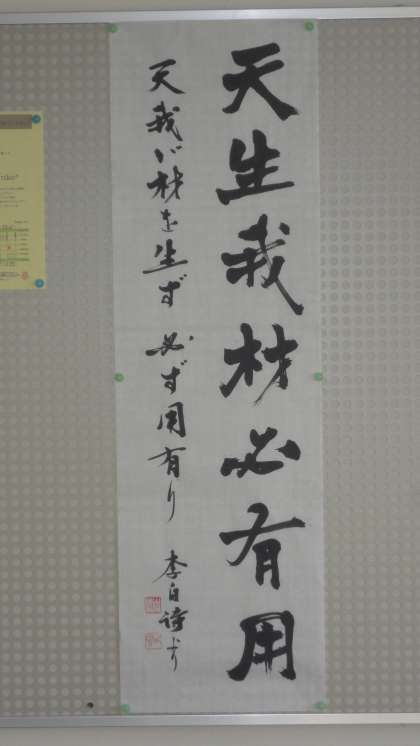 天生我材必有用
天我が材を生ず 必ず用有り 李白詩より